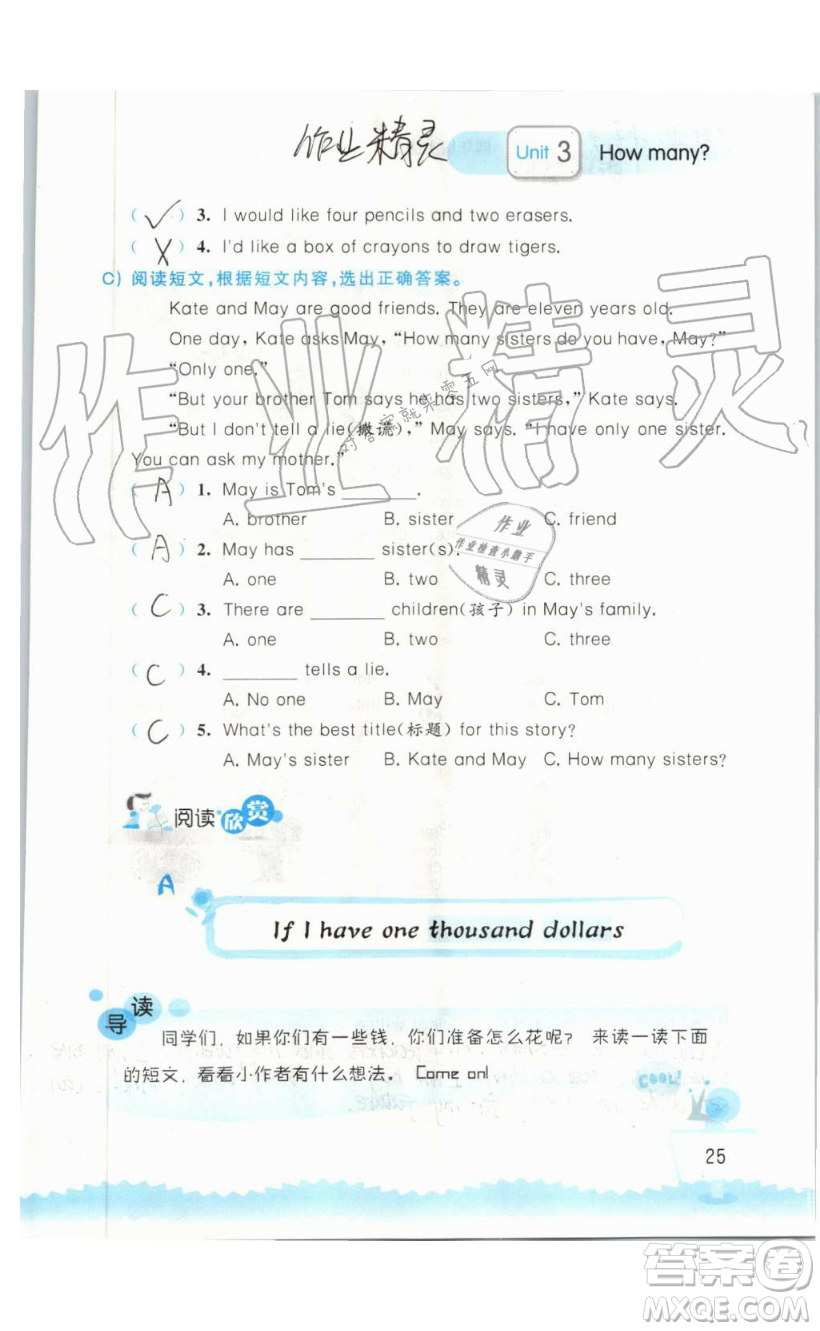 作业精灵
Unit 3 How many?
( √ ) 3. I would like four pencils and two erasers.
( X ) 4. I'd like a box of crayons to draw tigers.
C) 阅读短文,根据短文内容,选出正确答案。
Kate and May are good friends. They are eleven years old.
One day, Kate asks May, “How many sisters do you have, May?”
“Only one.”
“But your brother Tom says he has two sisters,” Kate says.
“But I don't tell a lie(撒谎),” May says. “I have only one sister.
You can ask my mother.”
( A ) 1. May is Tom's ________.
A. brother B. sister C. friend
( A ) 2. May has ________ sister(s).
A. one B. two C. three
( C ) 3. There are ________ children(孩子) in May's family.
A. one B. two C. three
( C ) 4. ________ tells a lie.
A. No one B. May C. Tom
( C ) 5. What's the best title(标题) for this story?
A. May's sister B. Kate and May C. How many sisters?
作业精灵
对答案就来零五网
作业
作业检查小助手
精灵
阅读欣赏
A
If I have one thousand dollars
导读
同学们,如果你们有一些钱,你们准备怎么花呢? 来读一读下面
的短文,看看小作者有什么想法。 Come on!
25
答案卷
MXQE.COM